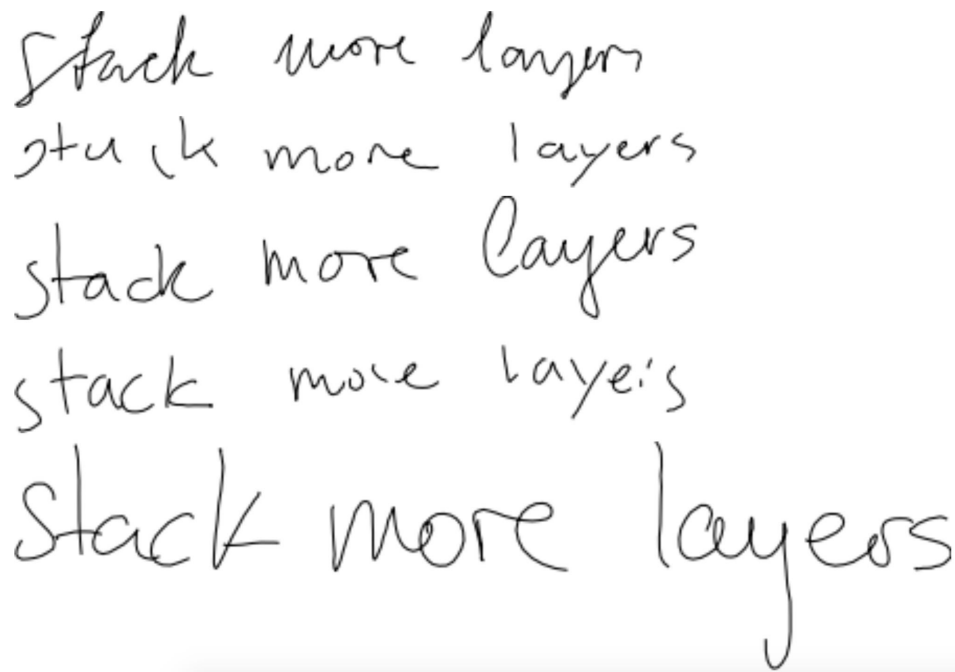 stack more layers
stack more layers
stack more layers
stack more layers
stack more layers